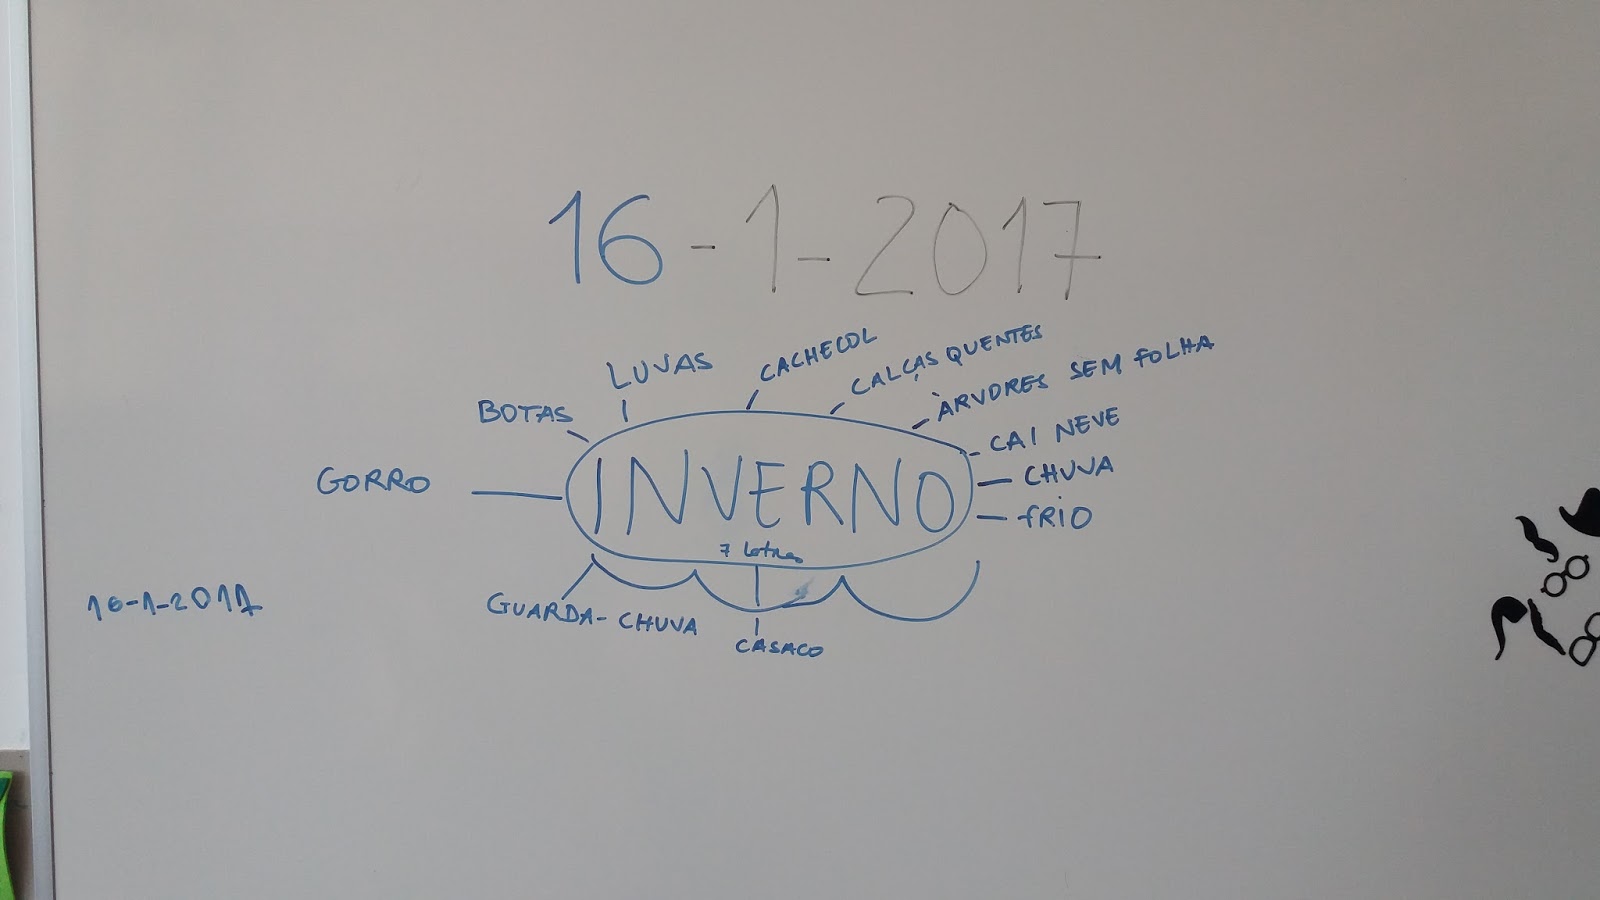 16-1-2017
LUVAS
CACHECOL
CALÇAS QUENTES
ÀRVORES SEM FOLHA
BOTAS
CAI NEVE
GORRO
INVERNO
CHUVA
FRIO
7 letras
16-1-2017
GUARDA-CHUVA
CASACO